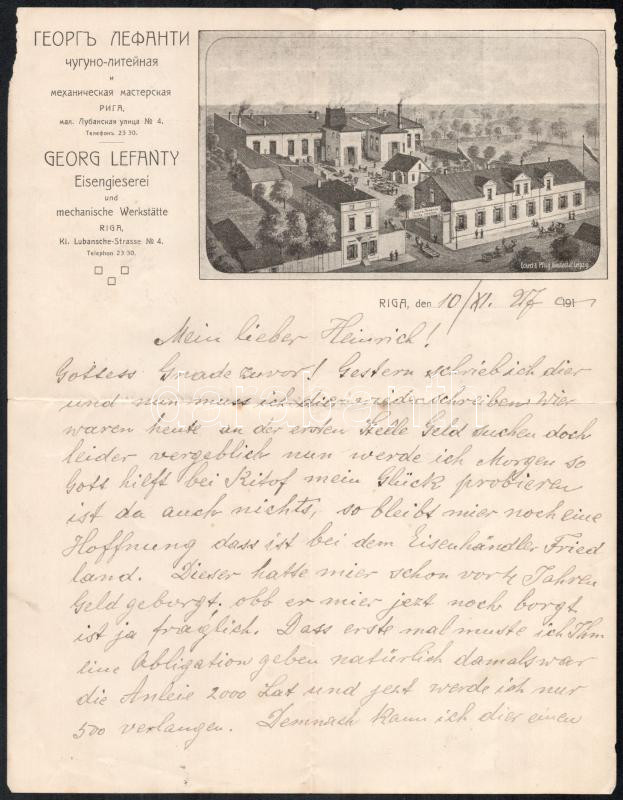 ГЕОРГЪ ЛЕФАНТИ
чугуно-литейная
и
механическая мастерская
РИГА,
мал. Лубанская улица № 4.
Телефонъ 23 30.
GEORG LEFANTY
Eisengieserei
und
mechanische Werkstätte
RIGA,
Kl. Lubansche-Strasse № 4.
Telephon 23 30.
RIGA, den 10/XI. 27 191
Mein lieber Heinrich!
Gottess Gnade zuvor! Gestern schrieb ich dier
und nun muss ich dier wider schreiben. Wier
waren heute an der ersten Stelle Geld suchen doch
leider vergeblich nun werde ich Morgen so
Gott hilft bei Kitof mein Glück probieren
ist da auch nichts, so bleibt mier noch eine
Hoffnung dass ist bei dem Eisenhändler Fried
land. Dieser hatte mier schon vor Jahren
Geld geborgt, obb er mier jezt noch borgt
ist ja fraglich. Dass erste mal muste ich Ihm
eine Obligation geben natürlich damals war
die Anleie 2000 Lat und jezt werde ich nur
500 verlangen. Demnach kann ich dier einen